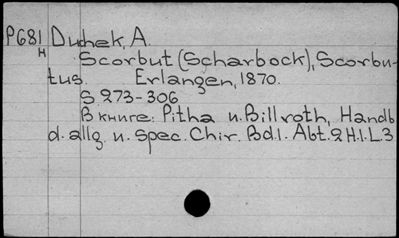 P681 Duchek, A.
H
Scorbut (Scharbock), Scorbu-
tus. Erlangen, 1870.
S. 273-306
В книге: Pitha u. Billroth, Handb
d. allg. u. spec. Chir. Bd.1. Abt.2 H.1.L.3